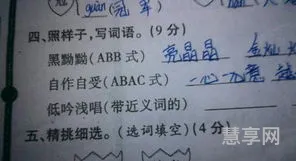 guàn(冠 军)
四、照样子,写词语。(9分)
黑黝黝(ABB式) 亮晶晶 金灿
自作自受(ABAC式) 一心一意
低吟浅唱(带近义词的)
五、精挑细选。(选词填空)(4分)
慧享网
www.